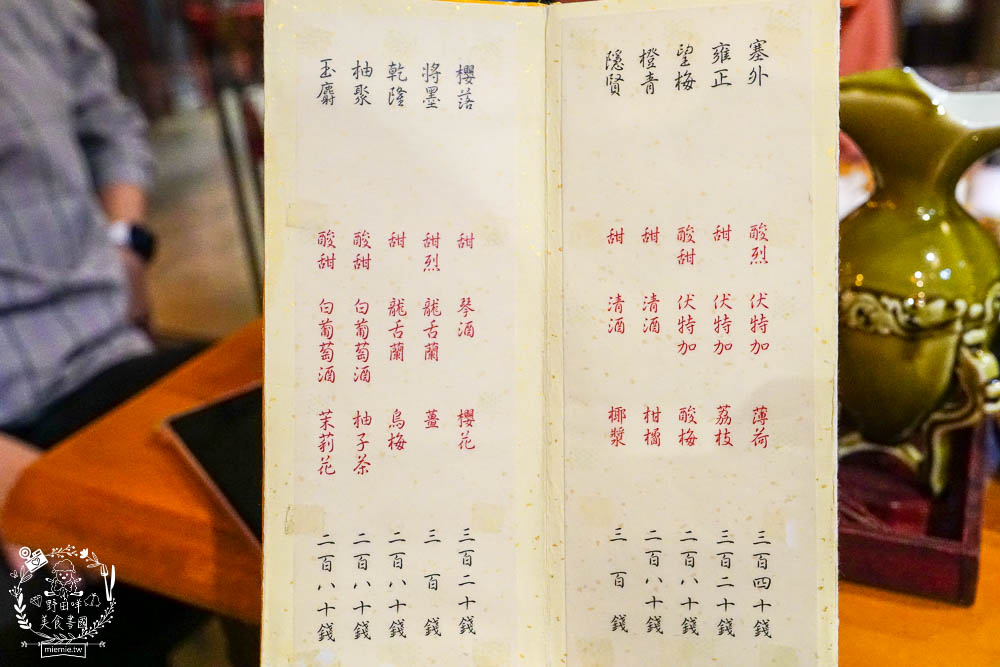 塞外 酸烈 伏特加 薄荷 三百四十錢
雍正 甜 伏特加 荔枝 三百二十錢
望梅 酸甜 伏特加 酸梅 二百八十錢
橙青 甜 清酒 柑橘 二百八十錢
隱賢 甜 清酒 椰漿 三百錢
櫻落 甜 琴酒 櫻花 三百二十錢
將墨 甜烈 龍舌蘭 薑 三百錢
乾隆 甜 龍舌蘭 烏梅 二百八十錢
柚聚 酸甜 白葡萄酒 柚子茶 二百八十錢
玉麝 酸甜 白葡萄酒 茉莉花 二百八十錢
野田咩
美食書國
miemie.tw